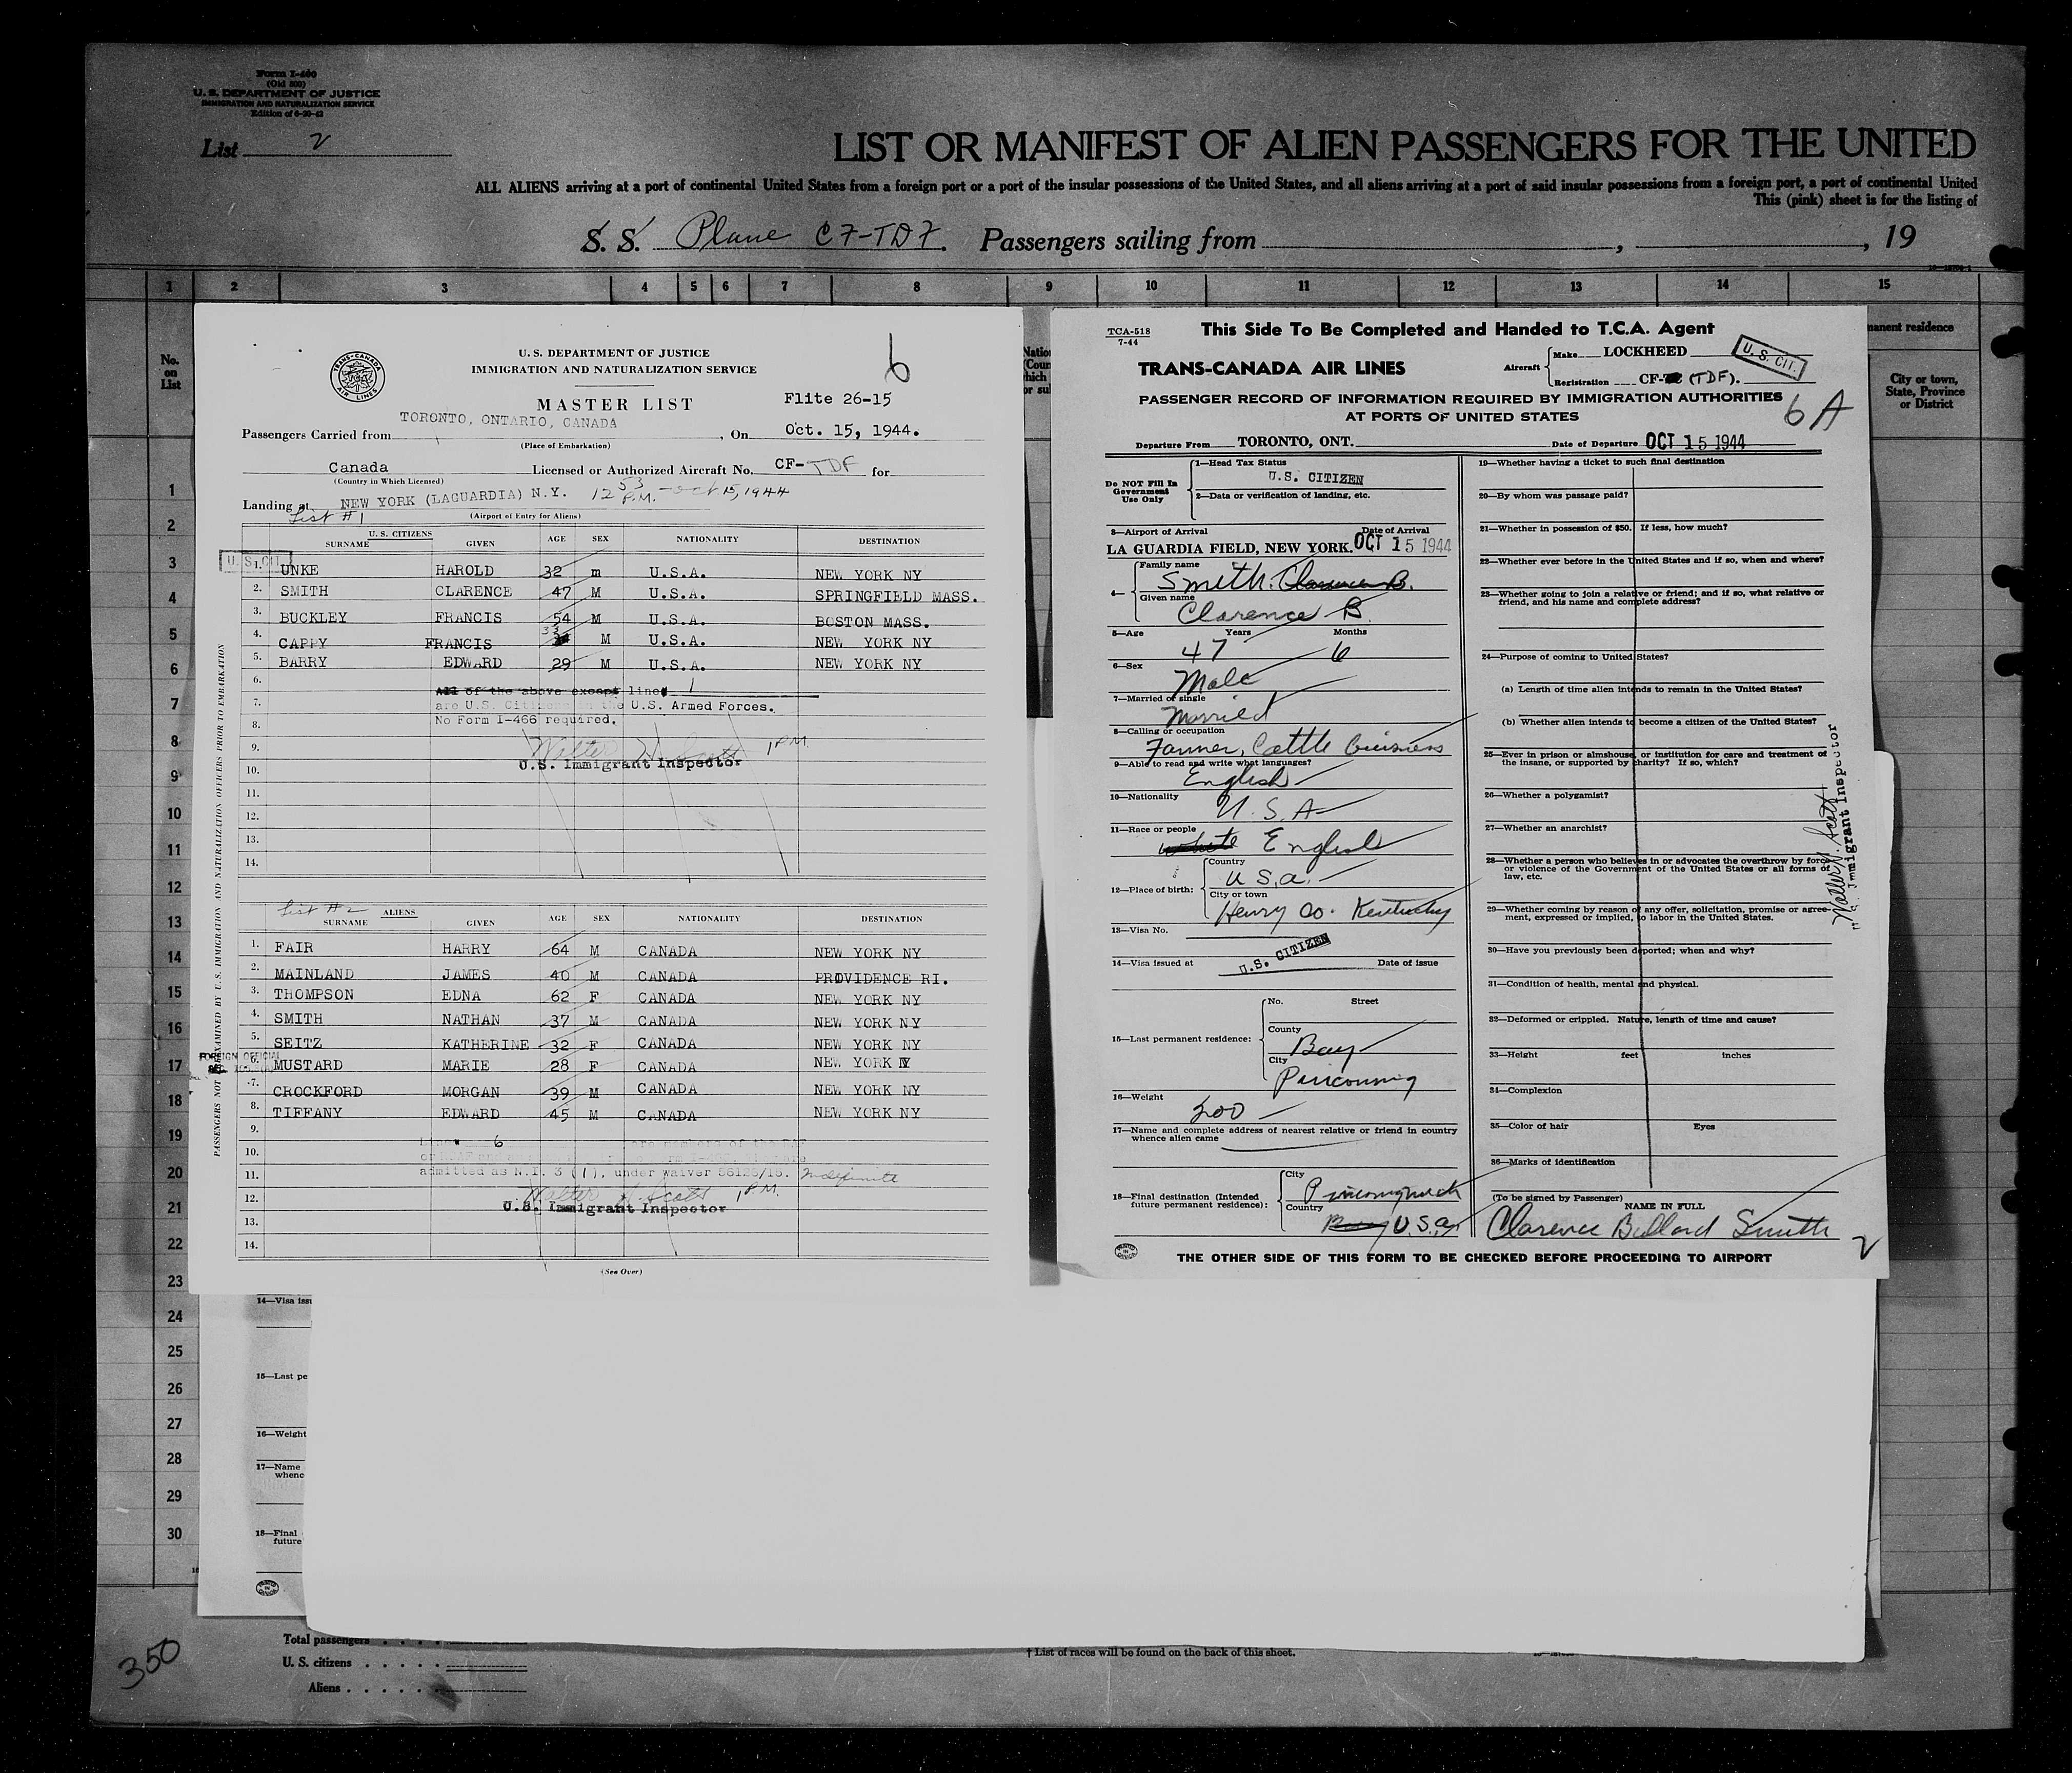 Form I-460
(Old 500)
U. S. DEPARTMENT OF JUSTICE
IMMIGRATION AND NATURALIZATION SERVICE
Edition of 6-20-42
List 2
LIST OR MANIFEST OF ALIEN PASSENGERS FOR THE UNITED
ALL ALIENS arriving at a port of continental United States from a foreign port or a port of the insular possessions of the United States, and all aliens arriving at a port of said insular possessions from a foreign port, a port of continental United
This (pink) sheet is for the listing of
S. S. Plane CF-TDF. Passengers sailing from , , 19
1 2 3 4 5 6 7 8 9 10 11 12 13 14 15
No. on List
manent residence
City or town, State, Province or District
1
2
3
4
5
6
7
8
9
10
11
12
13
14
15
16
17
18
19
20
21
22
23
24
25
26
27
28
29
30
TRANS-CANADA AIR LINES
U. S. DEPARTMENT OF JUSTICE
IMMIGRATION AND NATURALIZATION SERVICE
6
MASTER LIST
Flite 26-15
Passengers Carried from TORONTO, ONTARIO, CANADA, On Oct. 15, 1944.
(Place of Embarkation)
Canada Licensed or Authorized Aircraft No. CF-TDF for
(Country in Which Licensed)
Landing at NEW YORK (LAGUARDIA) N.Y. 12 53 P.M. - Oct 15, 1944
(Airport of Entry for Aliens)
List #1
U. S. CITIZENS
SURNAME GIVEN AGE SEX NATIONALITY DESTINATION
U. S. CIT.
1. UNKE HAROLD 32 m U.S.A. NEW YORK NY
2. SMITH CLARENCE 47 M U.S.A. SPRINGFIELD MASS.
3. BUCKLEY FRANCIS 54 M U.S.A. BOSTON MASS.
4. CAPPY FRANCIS 33 M U.S.A. NEW YORK NY
5. BARRY EDWARD 29 M U.S.A. NEW YORK NY
6. All of the above except line 1
7. are U.S. Citizens in the U.S. Armed Forces.
8. No Form I-466 required.
9. Walter N. Scott 1 P.M.
10. U.S. Immigrant Inspector
11.
12.
13.
14.
List #2
ALIENS
SURNAME GIVEN AGE SEX NATIONALITY DESTINATION
1. FAIR HARRY 64 M CANADA NEW YORK NY
2. MAINLAND JAMES 40 M CANADA PROVIDENCE RI.
3. THOMPSON EDNA 62 F CANADA NEW YORK NY
4. SMITH NATHAN 37 M CANADA NEW YORK NY
5. SEITZ KATHERINE 32 F CANADA NEW YORK NY
FOREIGN OFFICIAL
6. MUSTARD MARIE 28 F CANADA NEW YORK NY
7. CROCKFORD MORGAN 39 M CANADA NEW YORK NY
8. TIFFANY EDWARD 45 M CANADA NEW YORK NY
9.
Line 6 are members of the
10.
11. admitted as N.I. 3 (1), under waiver 56125/18. Indefinite
12. Walter N. Scott 1 P.M.
U.S. Immigrant Inspector
13.
14.
(See Over)
PASSENGERS NOT PREEXAMINED BY U.S. IMMIGRATION AND NATURALIZATION OFFICERS PRIOR TO EMBARKATION
TCA-518
7-44
This Side To Be Completed and Handed to T.C.A. Agent
TRANS-CANADA AIR LINES
Aircraft Make LOCKHEED
Registration CF- (TDF).
U. S. CIT.
PASSENGER RECORD OF INFORMATION REQUIRED BY IMMIGRATION AUTHORITIES
AT PORTS OF UNITED STATES
6 A
Departure From TORONTO, ONT. Date of Departure OCT 15 1944
Do NOT Fill In Government Use Only
1—Head Tax Status
U.S. CITIZEN
2—Data or verification of landing, etc.
3—Airport of Arrival Date of Arrival
LA GUARDIA FIELD, NEW YORK. OCT 15 1944
4— Family name
Smith. Clarence B.
Given name
Clarence B.
5—Age Years Months
47 6
6—Sex
Male
7—Married or single
Married
8—Calling or occupation
Farmer, Cattle business
9—Able to read and write what languages?
English
10—Nationality
U.S.A
11—Race or people
white English
12—Place of birth:
Country
U S.a.
City or town
Henry Co. Kentucky
13—Visa No.
U.S. CITIZEN
14—Visa issued at Date of issue
No. Street
15—Last permanent residence:
County
Bay
City
Pinconning
16—Weight
200
17—Name and complete address of nearest relative or friend in country whence alien came
18—Final destination (Intended future permanent residence):
City
Pinconning Mich
Country
Bay U.S.a.
19—Whether having a ticket to such final destination
20—By whom was passage paid?
21—Whether in possession of $50. If less, how much?
22—Whether ever before in the United States and if so, when and where?
23—Whether going to join a relative or friend; and if so, what relative or friend, and his name and complete address?
24—Purpose of coming to United States?
(a) Length of time alien intends to remain in the United States?
(b) Whether alien intends to become a citizen of the United States?
25—Ever in prison or almshouse, or institution for care and treatment of the insane, or supported by charity? If so, which?
26—Whether a polygamist?
27—Whether an anarchist?
28—Whether a person who believes in or advocates the overthrow by force or violence of the Government of the United States or all forms of law, etc.
29—Whether coming by reason of any offer, solicitation, promise or agreement, expressed or implied, to labor in the United States.
30—Have you previously been deported; when and why?
31—Condition of health, mental and physical.
32—Deformed or crippled. Nature, length of time and cause?
33—Height feet inches
34—Complexion
35—Color of hair Eyes
36—Marks of identification
(To be signed by Passenger) NAME IN FULL
Clarence Bullard Smith
2
Walter N. Scott
U.S. Immigrant Inspector
THE OTHER SIDE OF THIS FORM TO BE CHECKED BEFORE PROCEEDING TO AIRPORT
14—Visa issu
15—Last pe
16—Weight
17—Name
whenc
18—Final
future
Total passengers
U. S. citizens
Aliens
† List of races will be found on the back of this sheet.
350